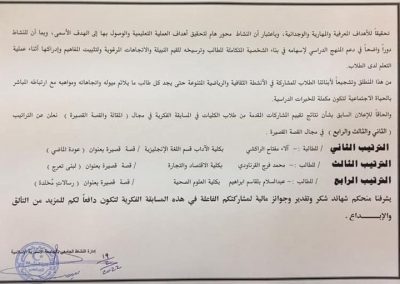 تحقيقا للأهداف المعرفية والمهارية والوجدانية، وبأعتبار أن النشاط محور هام لتحقيق أهداف العملية التعليمية والوصول بها إلى الهدف الأسمى، وبما للنشاط
دوراً واضحاً في دعم المنهج الدراسي لإسهامه في بناء الشخصية المتكاملة للطالب وترسيخه للقيم النبيلة والاتجاهات المرغوبة ولتثبيت المفاهيم وإدراكها أثناء عملية
التعلم لدى الطلاب.
من هذا المنطلق وتشجيعاً لأبنائنا الطلاب للمشاركة في الأنشطة الثقافية والرياضية المتنوعة حتى يجد كل طالب ما يلائم ميوله واتجاهاته ومواهبه مع ارتباطه المباشر
بالحياة الاجتماعية لتكون مكملة للخبرات الدراسية.
والحاقاً للإعلان السابق بشأن نتائج تقييم المشاركات المقدمة من طلاب الكليات في المسابقة الفكرية في مجال ( المقالة والقصة القصيرة ) نعلن عن التراتيب
( الثاني والثالث والرابع ) في مجال القصة القصيرة :
الترتيب الثاني / للطالبة :- آلاء مفتاح الراكشي / بكلية الآداب قسم اللغة الإنجليزية / قصة قصيرة بعنوان ( عودة الماضي )
الترتيب الثالث / للطالب :- محمد فرج القرناودي / بكلية الاقتصاد والتجارة / قصة قصيرة بعنوان ( لبنى تعرج )
الترتيب الرابع / للطالب :- عبدالسلام بلقاسم ابراهيم / بكلية العلوم الصحية / قصة قصيرة بعنوان ( رسالات مُخلدة )
يشرفنا منحكم شهائد شكر وتقدير وجوائز مالية لمشاركتكم الفاعلة في هذه المسابقة الفكرية لتكون دافعاً لكم للمزيد من التألق
والإبـداع .
إدارة النشاط الجامعي
2022